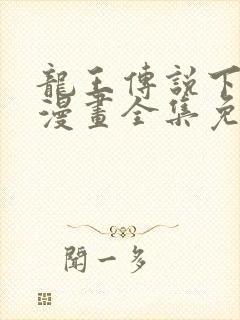 龍王傳說下
漫畫全集免
聞一多